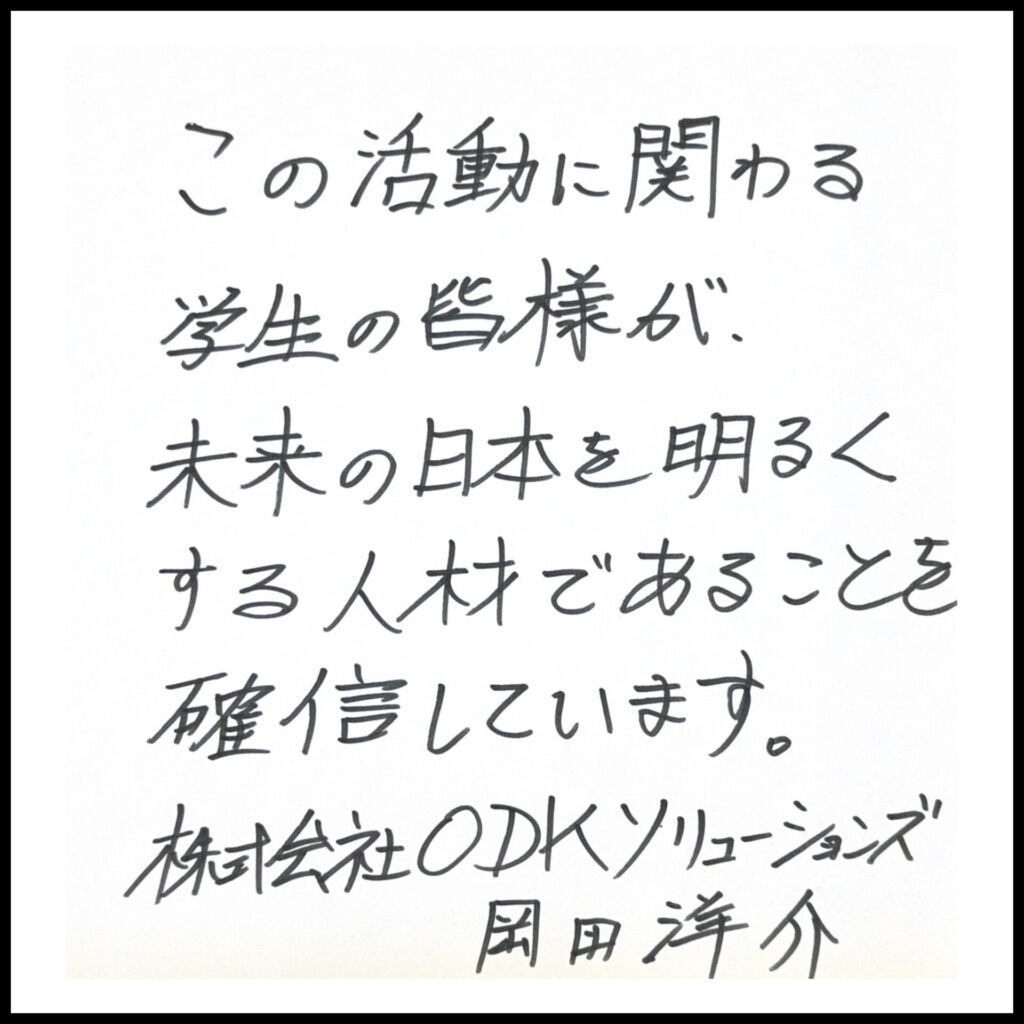 この活動に関わる
学生の皆様が、
未来の日本を明るく
する人材であることを
確信しています。
株式会社ODKソリューションズ
岡田洋介